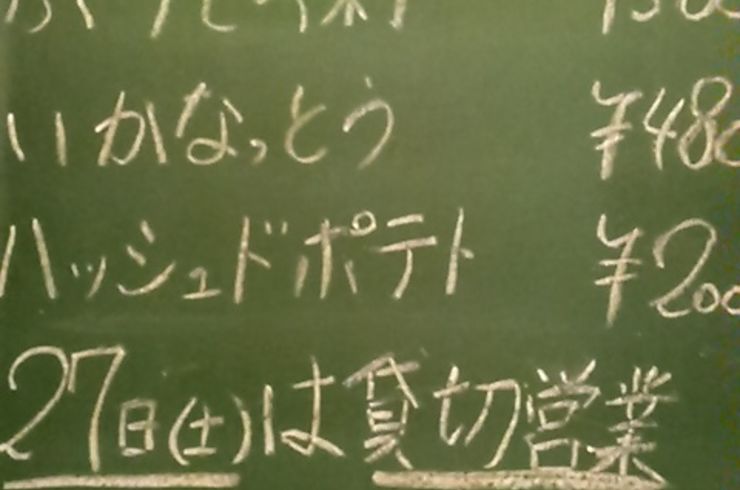 いかなっとう ¥480
ハッシュドポテト ¥200
27日(土)は貸切営業